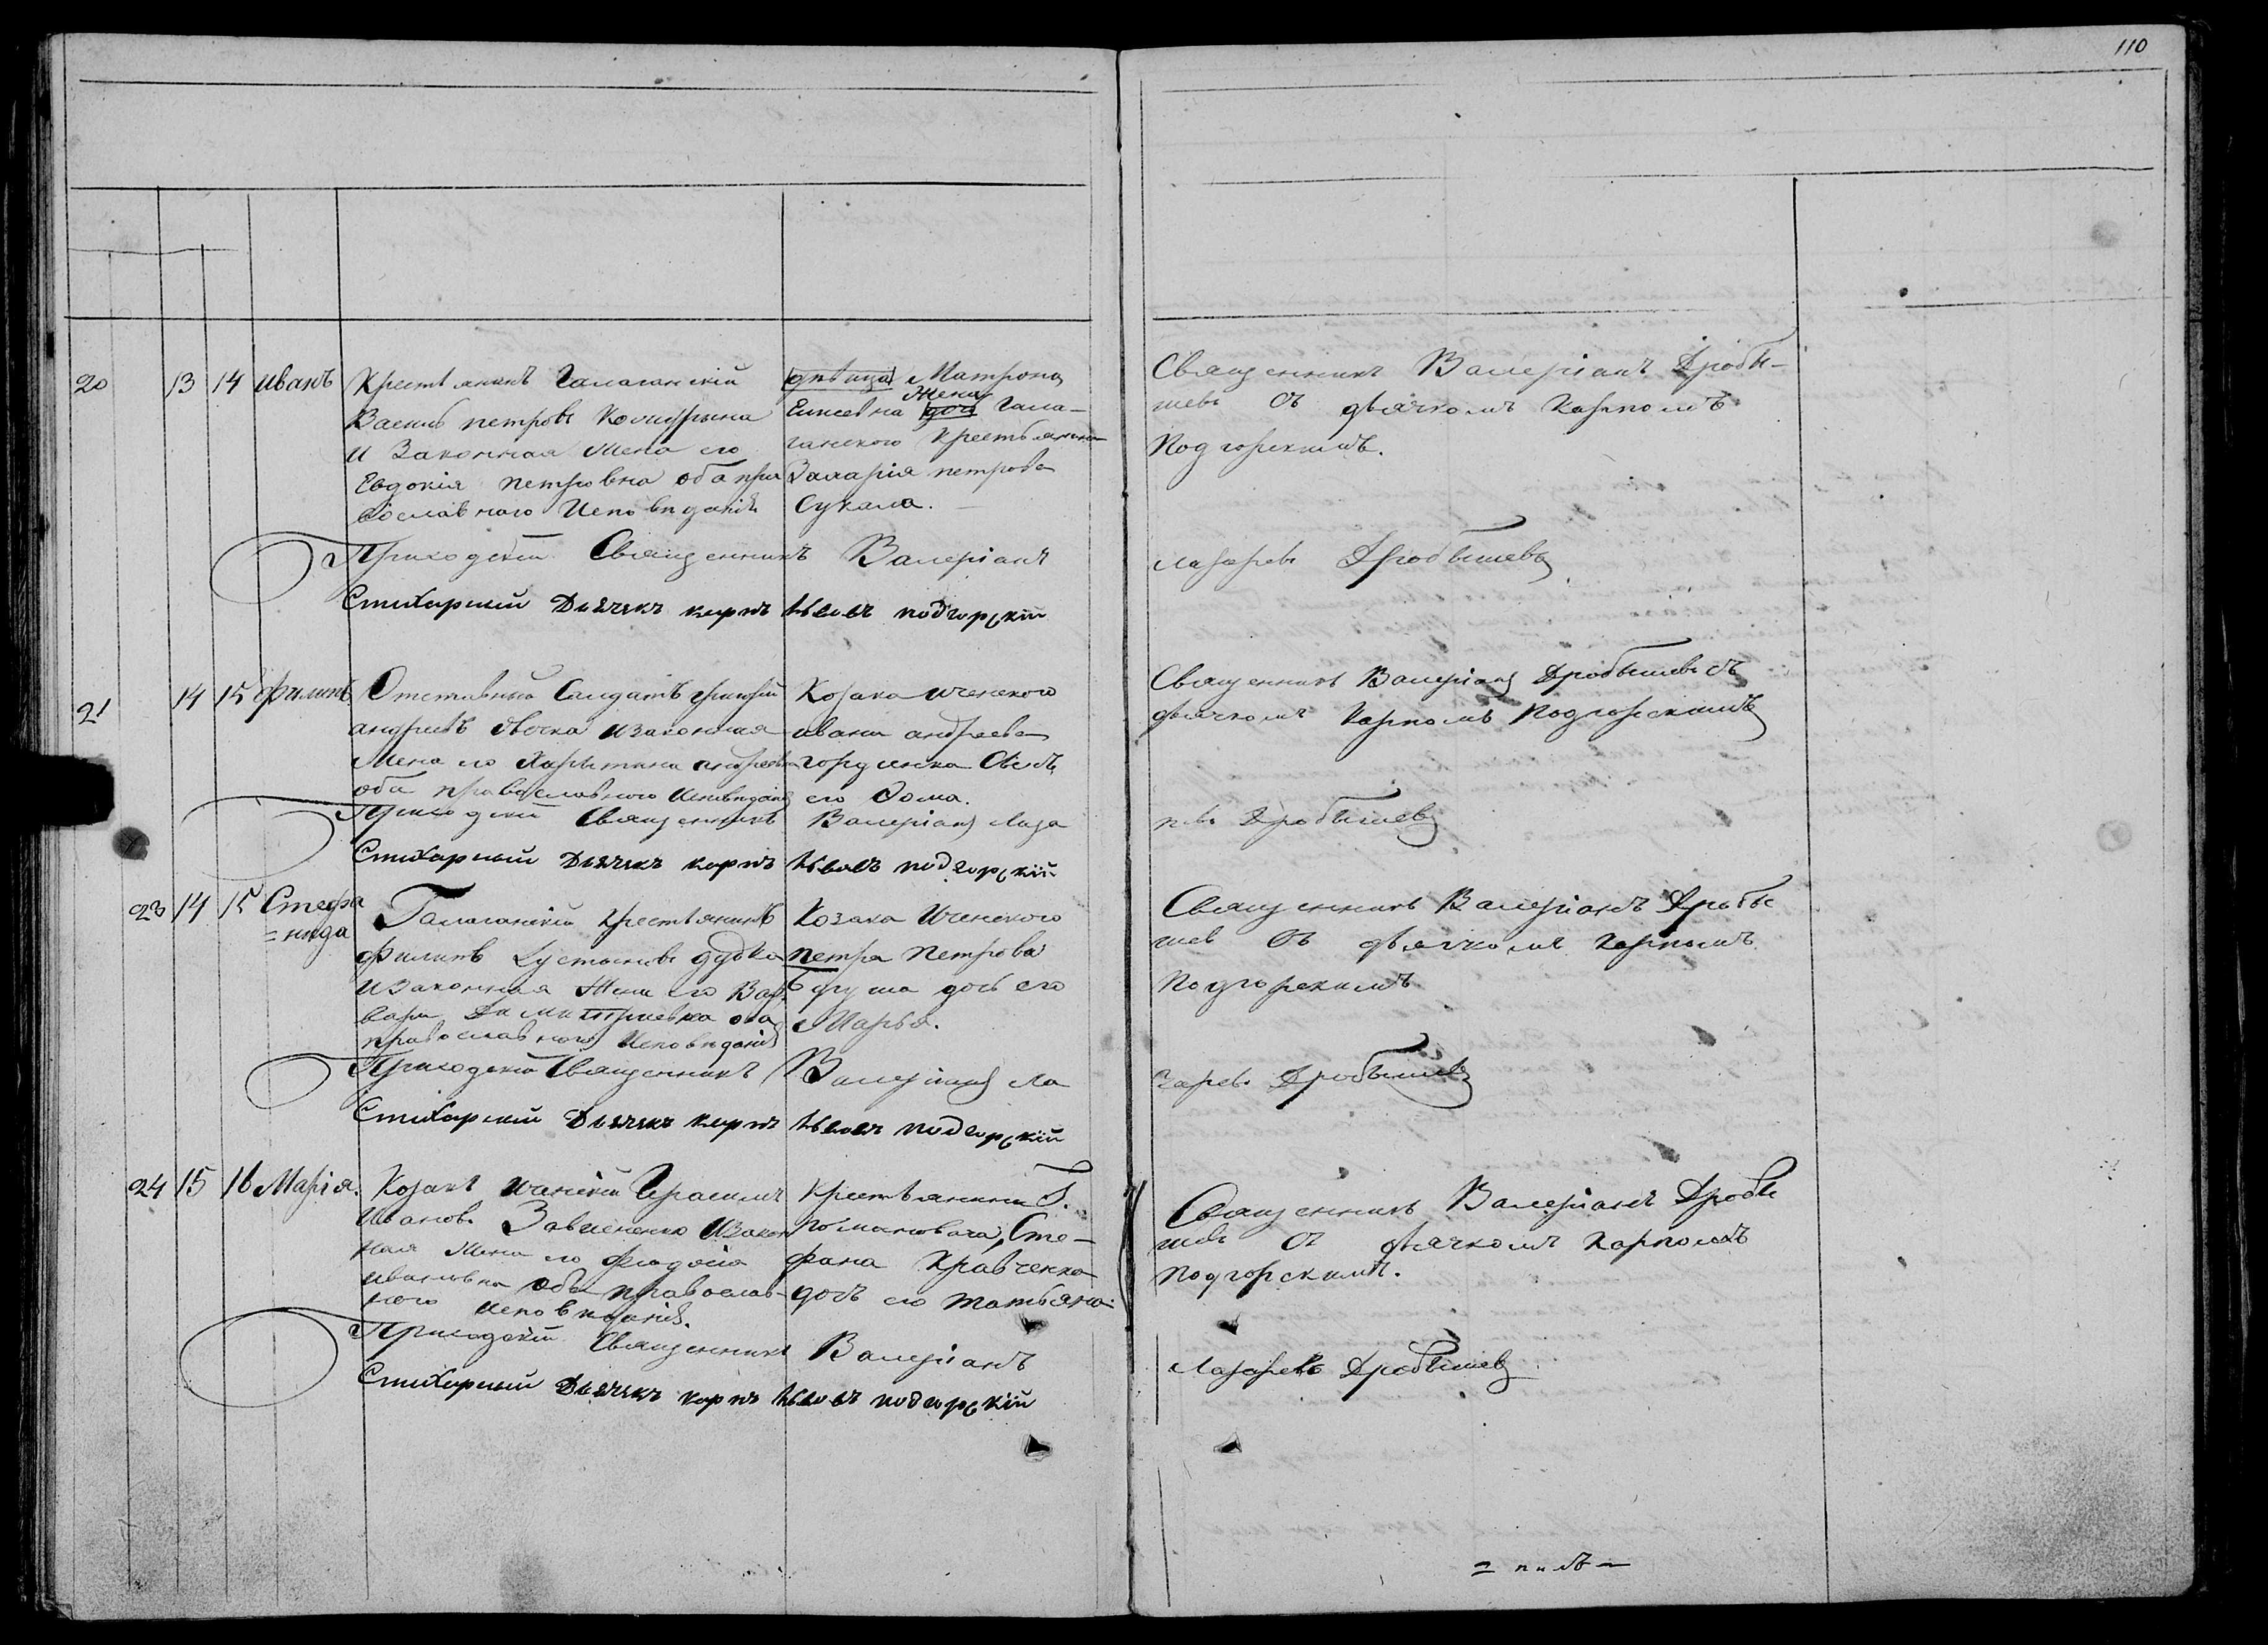 110
20 13 14 Иванъ
Крестьянинъ Галаганскій
Василь петровъ
и Законная Жена его
Евдокія петровна оба пра
вославного Исповѣданія
дѣвица Матрона
Жена
Елисеевна доч Гала-
ганского Крестьянина
Захарія петрова
Сукала.
Священникъ Валеріанъ Дробы-
шевъ съ дьячкомъ Карпомъ
Подгорскимъ.
Приходскій Священникъ Валеріанъ Лазаревъ Дробышевъ
Стихарный Дьячекъ карпъ подгорскій
21 14 15 Филипъ
Отставный Салдатъ григорій
андреевъ и законная
Жена его Харытина андреевна
оба православного Исповѣданія
Козака иченского
ивана андреева
гордиенка Сынъ
его Фома.
Священникъ Валеріанъ Дробышевъ съ
дьячкомъ Карпомъ Подгорскимъ
Приходскій Священникъ Валеріанъ Лаза
ревъ Дробышевъ
Стихарный Дьячекъ карпъ подгорскій
23 14 15 Стефа
=нида
Галаганскій Крестьянинъ
филипъ дудка
и законная Жена его Вар
вара Димитріевна оба
православного Исповѣданія
Козака Иченского
петра Петрова
дочь его
Марья.
Священникъ Валеріанъ Дробы
шев съ дьячкомъ Карпомъ
Подгорскимъ
Приходскій Священникъ Валеріанъ Ла
заревъ Дробышевъ
Стихарный Дьячекъ карпъ подгорскій
24 15 16 Марія.
Козакъ иченскій Герасимъ
Ивановъ и закон
ная Жена его Феодосія
ивановна оба православ-
ного исповѣданія.
Крестьянина Г.
Сте-
фана Кравченка
дочь его татьяна.
Священникъ Валеріанъ Дробы
шевъ съ дьячкомъ Карпомъ
подгорскимъ.
Приходскій Священникъ Валеріанъ
Лазаревъ Дробышевъ
Стихарный Дьячекъ карпъ подгорскій